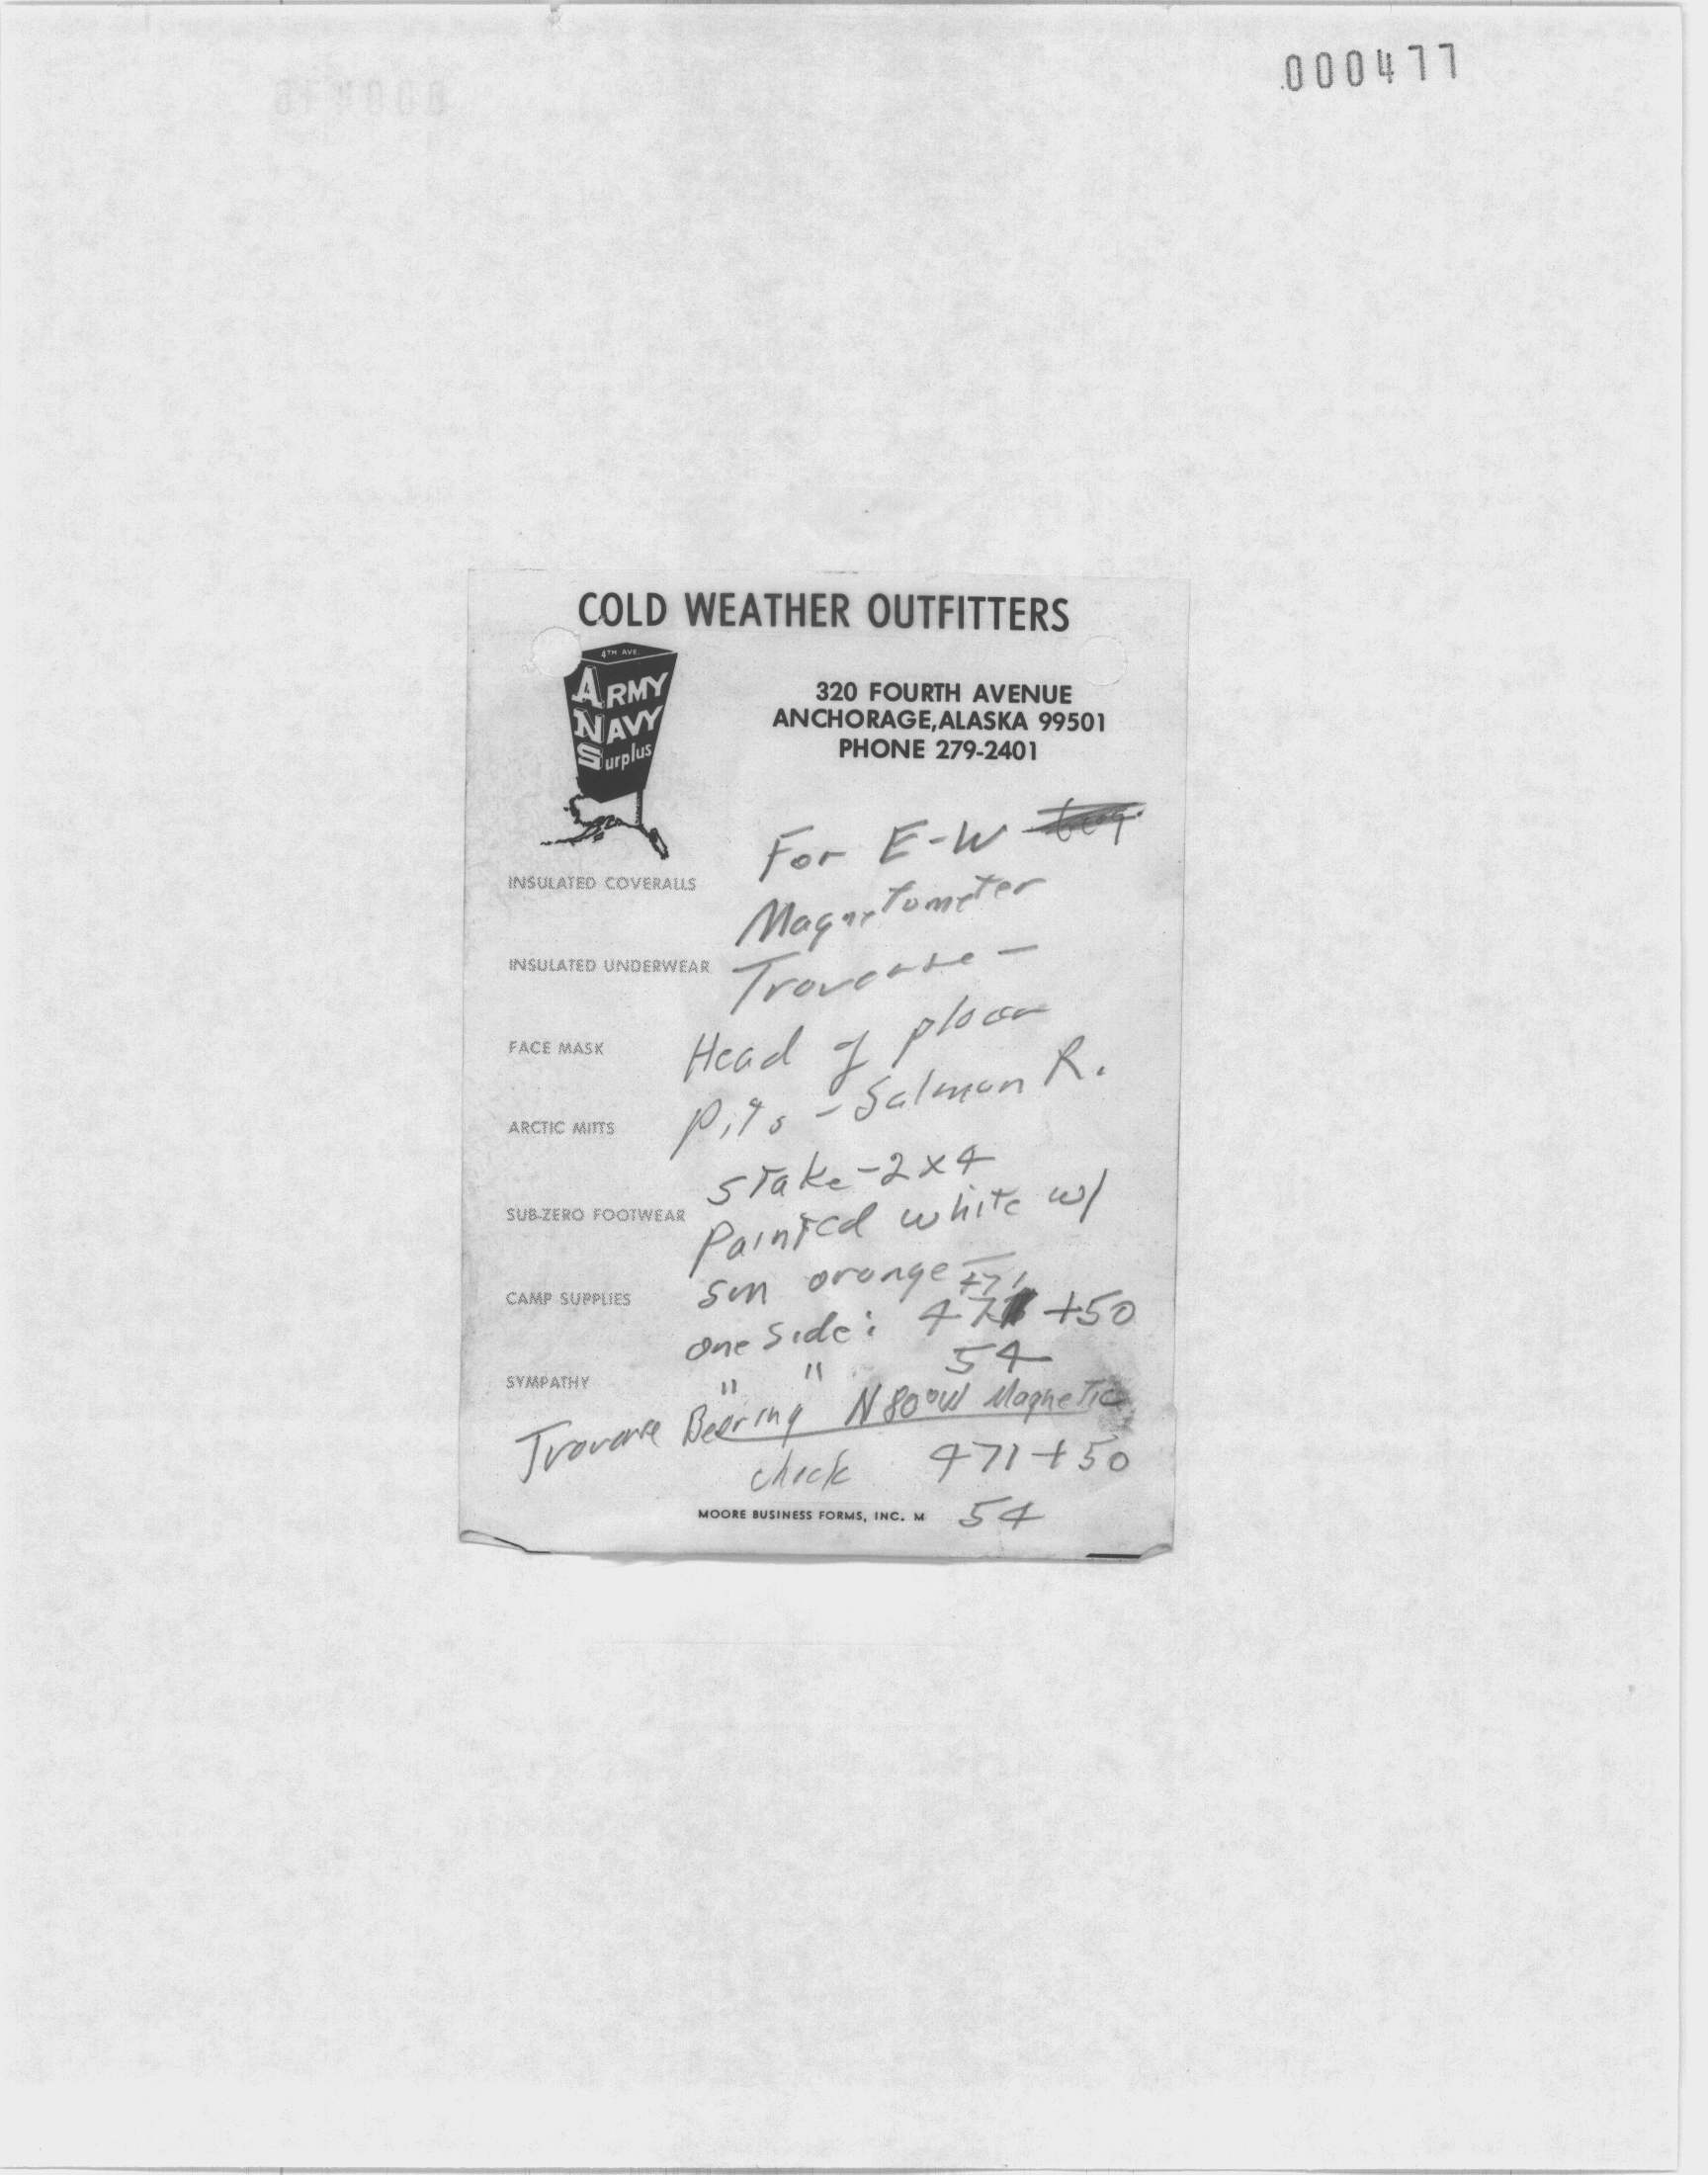 000477
COLD WEATHER OUTFITTERS
4TH AVE.
ARMY
NAVY
Surplus
320 FOURTH AVENUE
ANCHORAGE, ALASKA 99501
PHONE 279-2401
For E-W
INSULATED COVERALLS
Magnetometer
INSULATED UNDERWEAR
Traverse -
Head of placer
FACE MASK
Pits - Salmon R.
ARCTIC MITTS
stake - 2x4
SUB-ZERO FOOTWEAR
Painted white w/
orange -
471
CAMP SUPPLIES
one side: 471 +50
54
SYMPATHY
" "
Traverse Bearing N80°W Magnetic
check 471+50
MOORE BUSINESS FORMS, INC. M
54